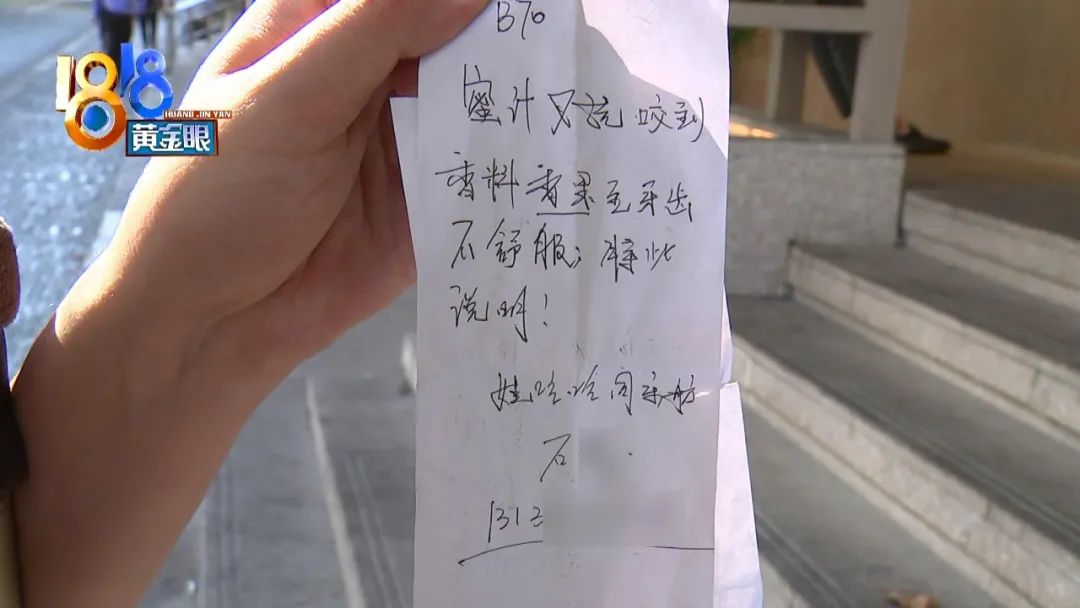 1818
HUANG JIN YAN
黄金眼
B70
蜜汁 咬到
香料 至牙齿
不舒服; 特此
说明!
娃哈哈
石
1312